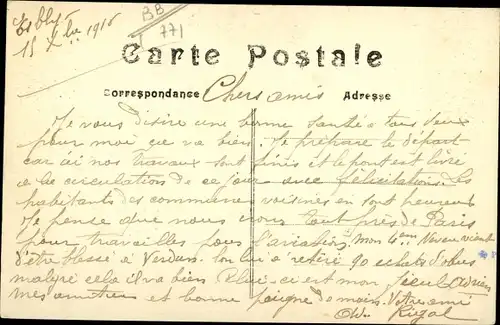 15 Xbre 1916
BB
771
Carte Postale
Correspondance Chers amis Adresse
Je vous désire une bonne santé a tous deux
pour moi ça va bien. Je prépare le départ
car ici nos travaux sont finis et le pont est livré
a la circulation de ce jour avec félicitations. Les
habitants des communes voisines en sont heureux
Je pense que nous irons tout près de Paris
pour travailler pour l'aviation. Mon 4em Neveu vient
d'être blessé a Verdun. On lui a retiré 90 eclats d'obus
malgré cela il va bien. Celui-ci est mon Adrien
Mes amitiés et bonne poigne de mains. Votre ami
Rigal